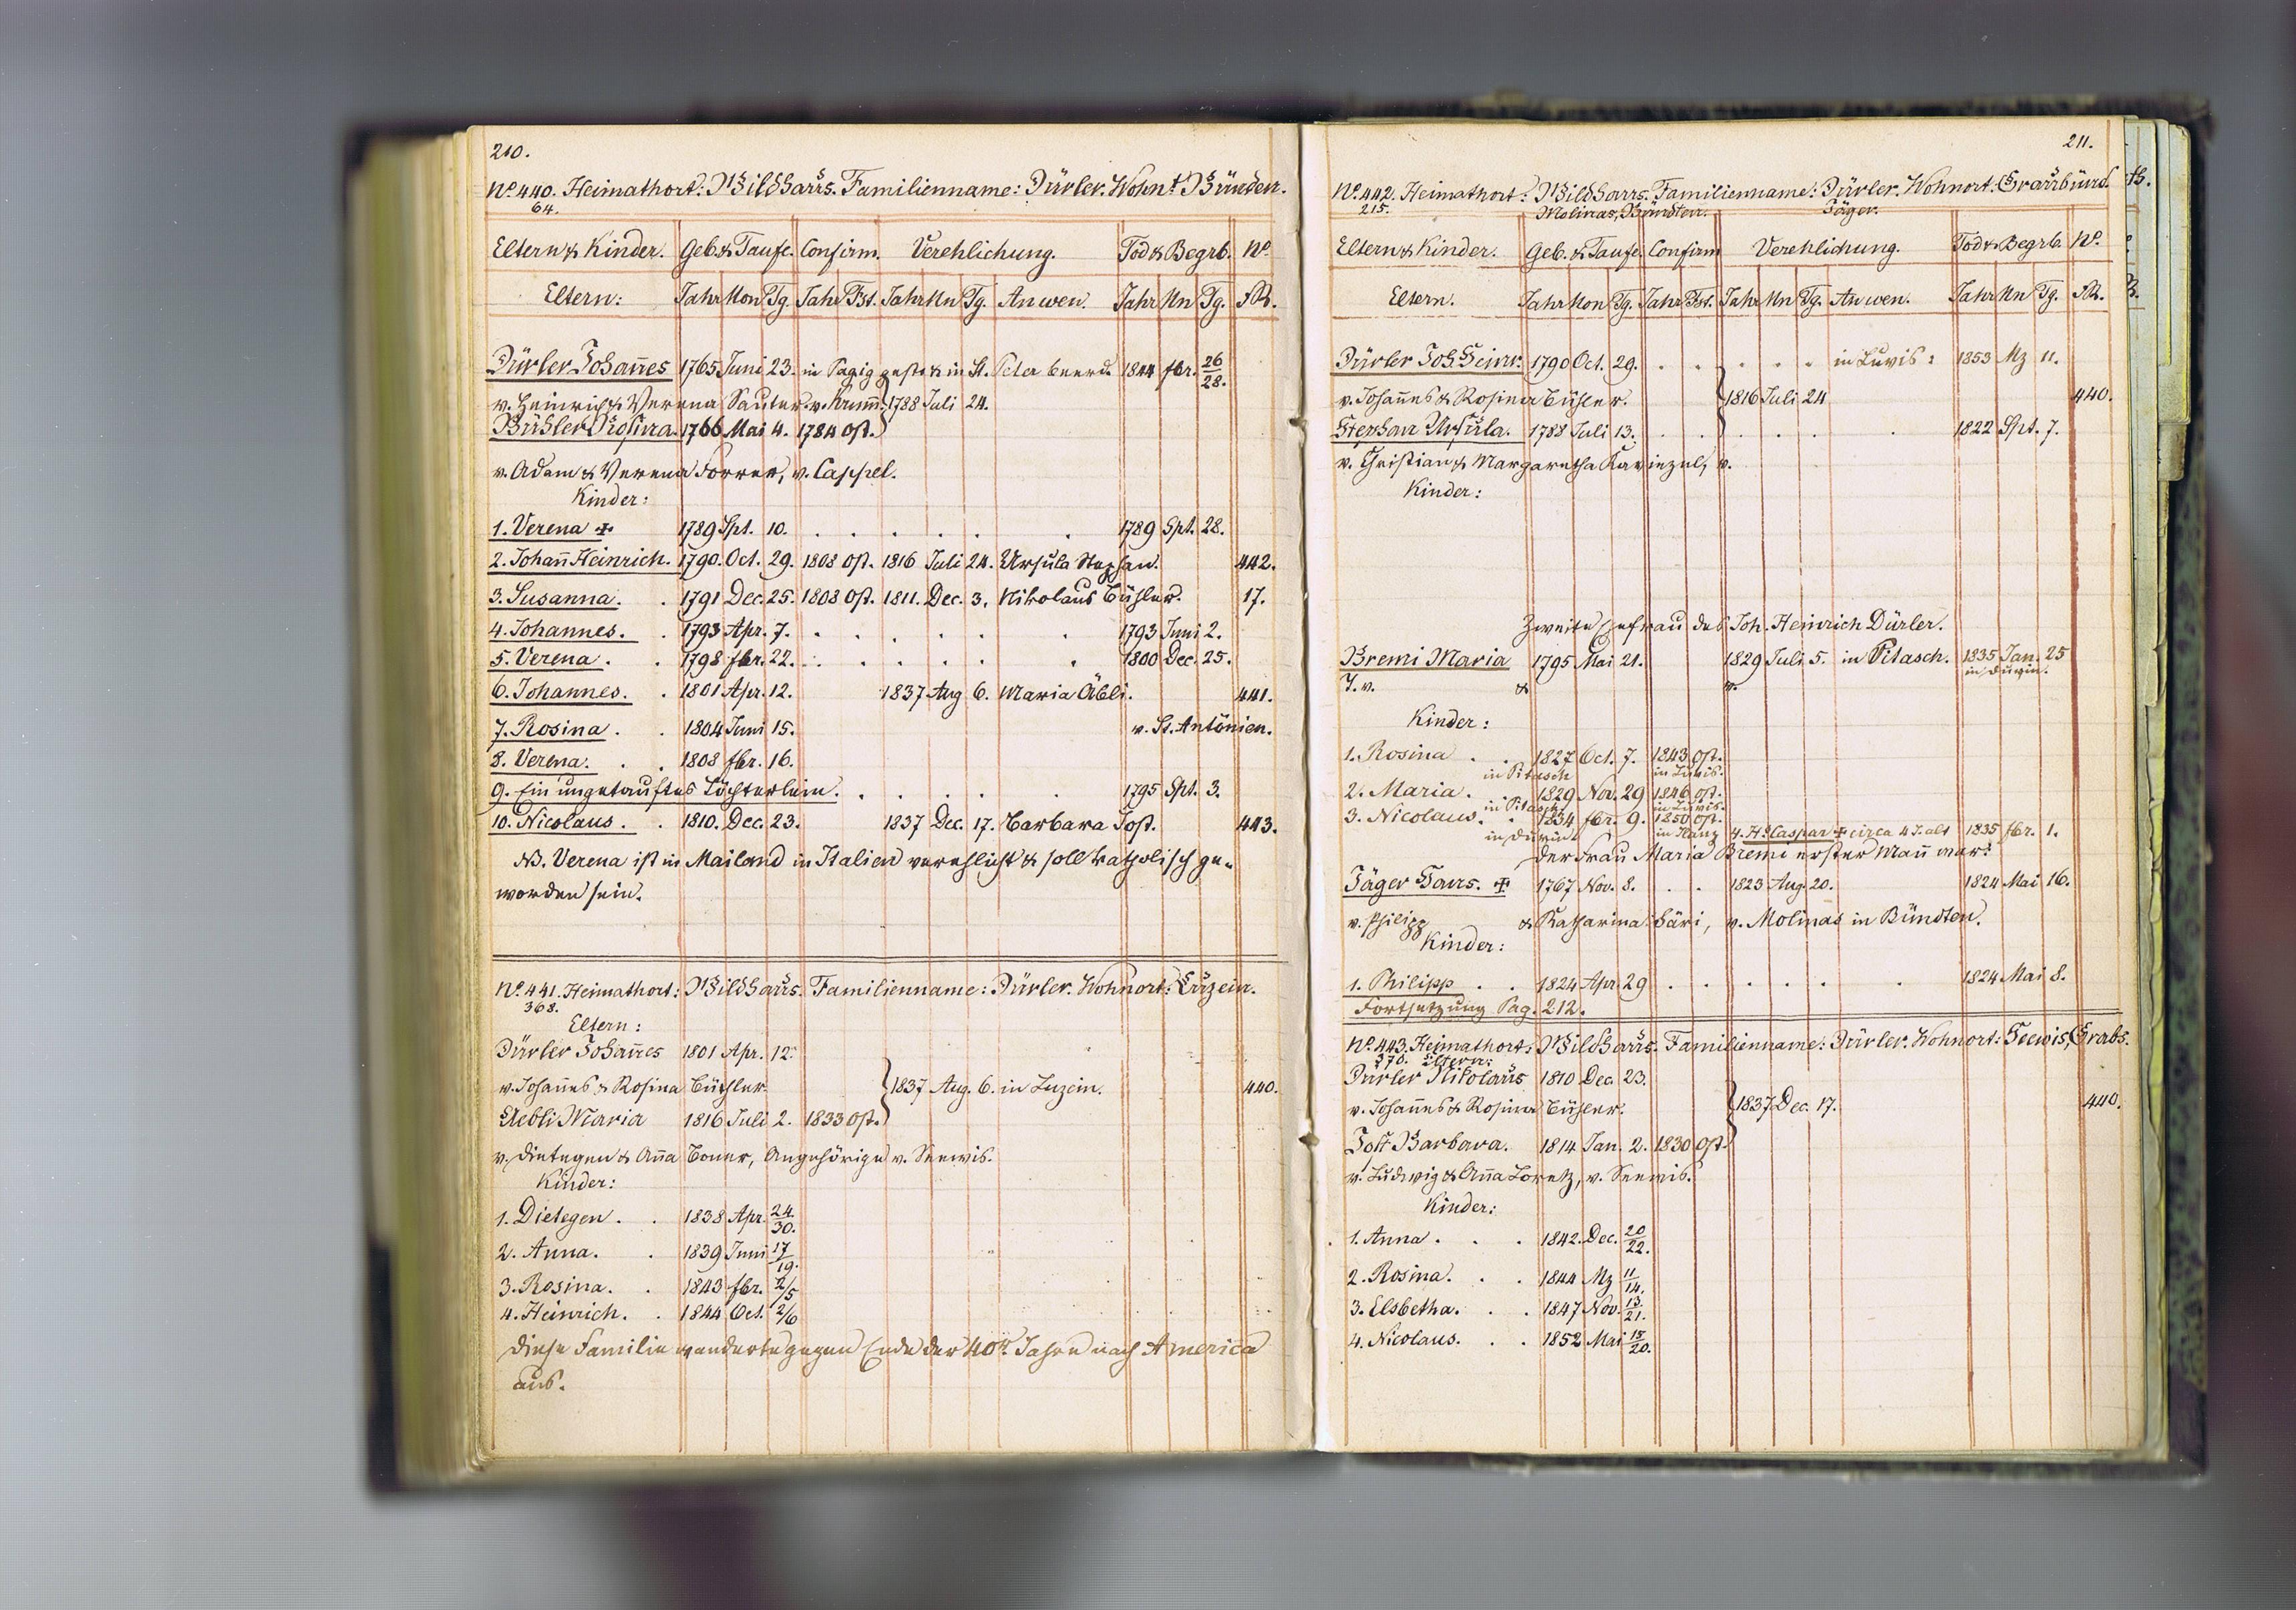 210.
No. 440. Heimathort: Wildhaus. Familienname: Dürler. Wohnt: Bünden.
64.
Eltern & Kinder. Geb. & Taufe. Confirm. Verehlichung. Tod & Begrb. No.
Eltern: Jahr Mon Tg. Jahr Fst. Jahr Mn Tg. An wen. Jahr Mn Tg. R.
Dürler Johañes 1765 Juni 23. in Pagig gest. & in St. Peter beerd. 1844 fbr. 26/28.
v. Heinrich & Verena Sauter v. Krumm. 1788 Juli 24.
Bühler Rosina. 1766 Mai 4. 1784 Ost.
v. Adam & Verena Forrer, v. Cappel.
Kinder:
1. Verena ✢ 1789 Spt. 10. . . . . . . 1789 Spt. 28.
2. Johañ Heinrich. 1790. Oct. 29. 1808 Ost. 1816 Juli 24. Ursula Stephan. 442.
3. Susanna. . 1791 Dec. 25. 1808 Ost. 1811. Dec. 3. Nikolaus Bühler. 17.
4. Johannes. . 1793 Apr. 7. . . . . . . 1793 Juni 2.
5. Verena. . 1798 fbr. 22. . . . . . . 1800 Dec. 25.
6. Johannes. . 1801 Apr. 12. 1837 Aug 6. Maria Äbli. 441.
7. Rosina. . 1804 Juni 15. v. St. Antönien.
8. Verena. . . 1808 fbr. 16.
9. Ein ungetauftes Töchterlein. . . . . . 1795 Spt. 3.
10. Nicolaus. . 1810. Dec. 23. 1837 Dec. 17. Barbara Jost. 443.
NB. Verena ist in Mailand in Italien verehlicht & soll katholisch ge-
worden sein.
No. 441. Heimathort: Wildhaus. Familienname: Dürler. Wohnort: Luzein.
368.
Eltern:
Dürler Johañes 1801 Apr. 12.
v. Johañes & Rosina Bühler. 1837 Aug. 6. in Luzein. 440.
Aebli Maria 1816 Juli 2. 1833 Ost.
v. Dietegen & Aña Boner, Angehörige v. Seewis.
Kinder:
1. Dietegen. . 1838 Apr. 24/30.
2. Anna. . 1839 Juni 17/19.
3. Rosina. . 1843 fbr. 2/5
4. Heinrich. . 1844 Oct. 2/6
Diese Familie wanderte gegen Ende der 40er Jahre nach America
aus.
211.
No. 442. Heimathort: Wildhaus. Familienname: Dürler. Wohnort: Graubünd.
215. Molinas, Bündten. Jäger.
Eltern & Kinder. Geb. & Taufe. Confirm Verehlichung. Tod & Begrb. No.
Eltern. Jahr Mon Tg. Jahr Fst. Jahr Mn Tg. An wen. Jahr Mn Tg. R.
Dürler Joh. Heinr. 1790 Oct. 29. . . . . . in Luvis: 1853 Mz 11.
v. Johañes & Rosina Bühler. 1816 Juli 24 440.
Stephan Ursula. 1788 Juli 13. . . . . . . 1822 Spt. 7.
v. Christian & Margaretha v.
Kinder:
Zweite Ehefrau des Joh. Heinrich Dürler.
Bremi Maria 1795 Mai 21. 1829 Juli 5. in Pitasch. 1835 Jan. 25
in Duvin.
J. v. & v.
Kinder:
1. Rosina . . 1827 Oct. 7. 1843 Ost.
in Pitasch in Luvis.
2. Maria. . 1829 Nov. 29 1846 Ost.
in Pitasch in Luvis.
3. Nicolaus. . 1834 fbr. 9. 1850 Ost.
in Duvin. in Ilanz 4. Hs Caspar ✢ circa 4 J. alt 1835 fbr. 1.
Der Frau Maria Bremi erster Mañ war:
Jäger Hans. ✢ 1767 Nov. 8. . . 1823 Aug. 20. 1824 Mai 16.
v. Philipp & Katharina Säri, v. Molinas in Bündten.
Kinder:
1. Philipp . . 1824 Apr 29 . . . . . . 1824 Mai 8.
Fortsetzung Pag. 212.
No. 443. Heimathort: Wildhaus. Familienname: Dürler. Wohnort: Seewis, Grabs.
370. Eltern:
Dürler Nikolaus 1810 Dec. 23.
v. Johañes & Rosina Bühler. 1837 Dec. 17. 440.
Jost Barbara. 1814 Jan. 2. 1830 Ost.
v. Ludwig & Aña Loretz, v. Seewis.
Kinder:
1. Anna . . . 1842. Dec. 20/22.
2. Rosina. . . 1844 Mz 11/14.
3. Elsbetha. . . 1847 Nov. 13/21.
4. Nicolaus. . . 1852 Mai 15/20.